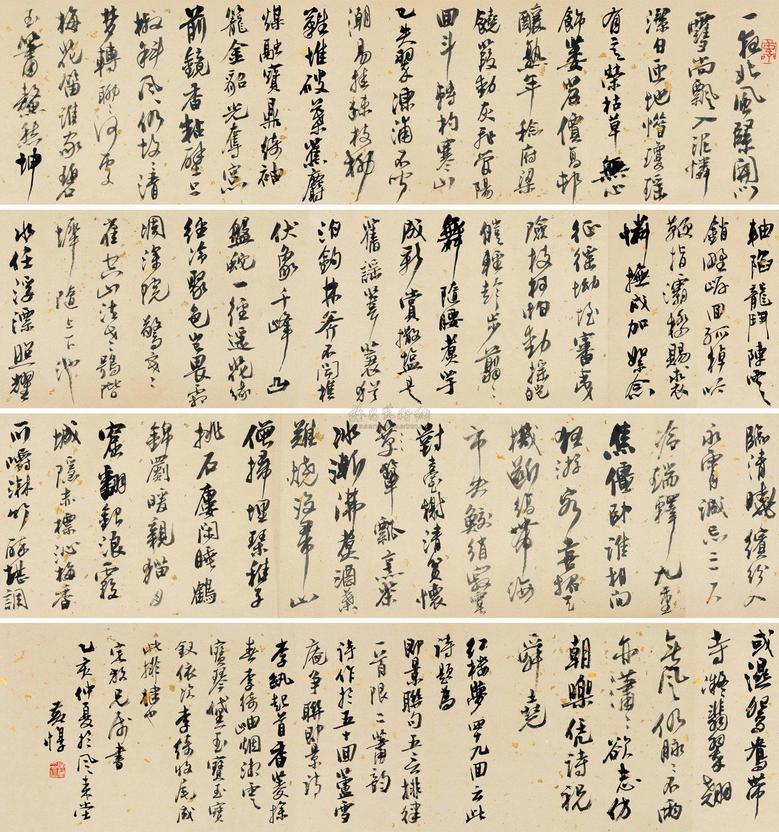 一夜北風緊開門
雪尚飄入泥憐
潔白匝地惜瓊瑤
有意榮枯草無心
飾萎苕價高村
釀熟年稔府粱
饒葭動灰飛管陽
回斗轉杓寒山
已失翠凍浦不聞
潮易挂疎枝柳
難堆破葉蕉麝
煤融寶鼎綺袖
籠金貂光奪窗
前鏡香黏壁上
椒斜風仍故故清
夢轉聊聊何處
梅花笛誰家碧
玉簫鰲愁坤
軸陷龍鬥陣雲
銷野岸回孤棹吟
鞭指灞橋賜裘
憐撫戍加絮念
征徭坳垤審夷
險枝柯怕動搖皚
皚輕趁步翦翦
舞隨腰煮芋
成新賞撒鹽是
舊謠葦蓑猶
泊釣林斧不聞樵
伏象千峰凸
盤蛇一徑遙花緣
經冷聚色豈畏霜
凋深院驚寒
雀空山泣老鴞階
墀隨上下池
水任浮漂照耀
臨清曉繽紛入
永宵誠忘三尺
冷瑞釋九重
焦僵臥誰相問
狂游客喜招天
機斷縞帶海
市失鮫綃寂寞
對臺榭清貧懷
簞瓢烹茶
冰漸沸煮酒葉
難燒沒帚山
僧掃埋琴稚子
挑石樓閑睡鶴
錦罽暖親貓月
窟翻銀浪霞
城隱赤標沁梅香
可嚼淋竹醉堪調
或濕鴛鴦帶
時凝翡翠翹
無風仍脉脉不雨
亦瀟瀟欲志今
朝樂憑詩祝
舜堯
紅樓夢第四九回云此
詩題為
即景聯句五言排律
一首限二蕭韻
詩作於五十回蘆雪
庵爭聯即景詩
李紈起首香菱探
春李綺岫烟湘雲
寶琴黛玉寶玉寶
釵依次李綺收尾成
此排律也
兄屬書
乙亥仲夏於風來堂